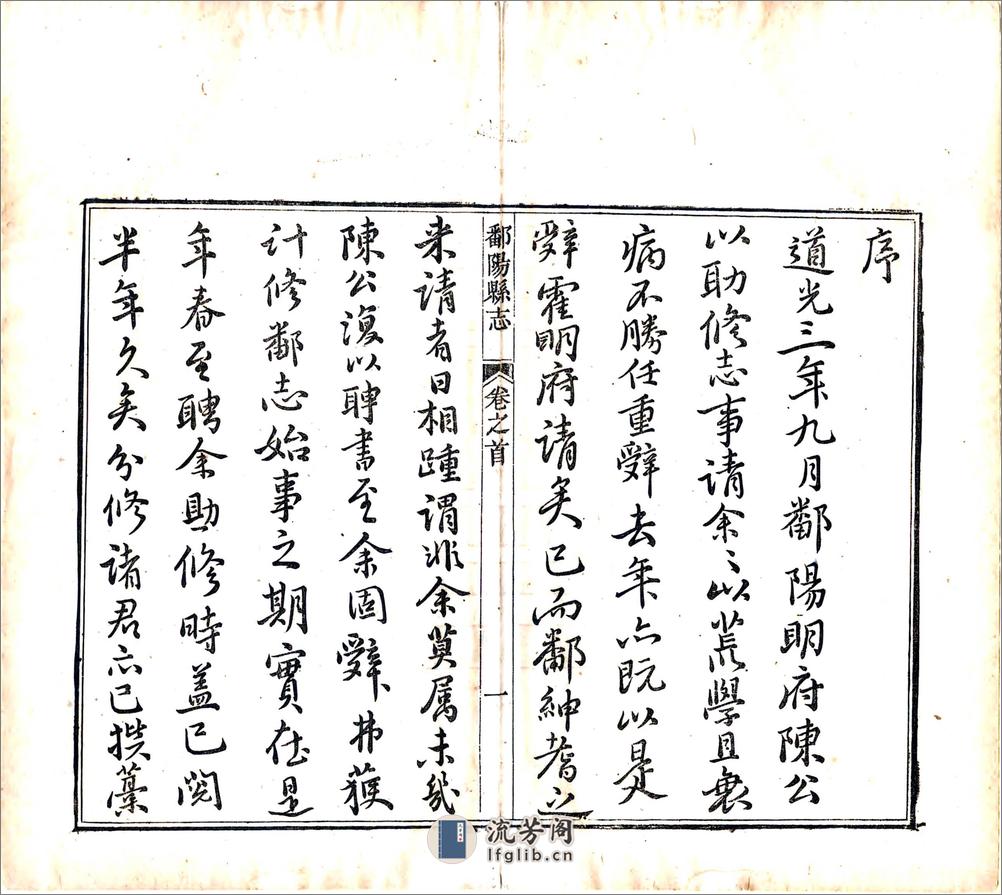 序
道光三年九月鄱陽明府陳公
以助修志事請余〻以荒學且衰
病不勝任重辤去年亦既以是
辤霍明府請矣已而鄱紳耆之
鄱陽縣志 卷之首 一
来請者日相踵謂非余莫属未幾
陳公復以聘書至余固辤弗獲
计修鄱志始事之期實在是
年春至聘余助修時盖已閱
半年久矣分修諸君亦已撰藁
流芳阁
lfglib.cn